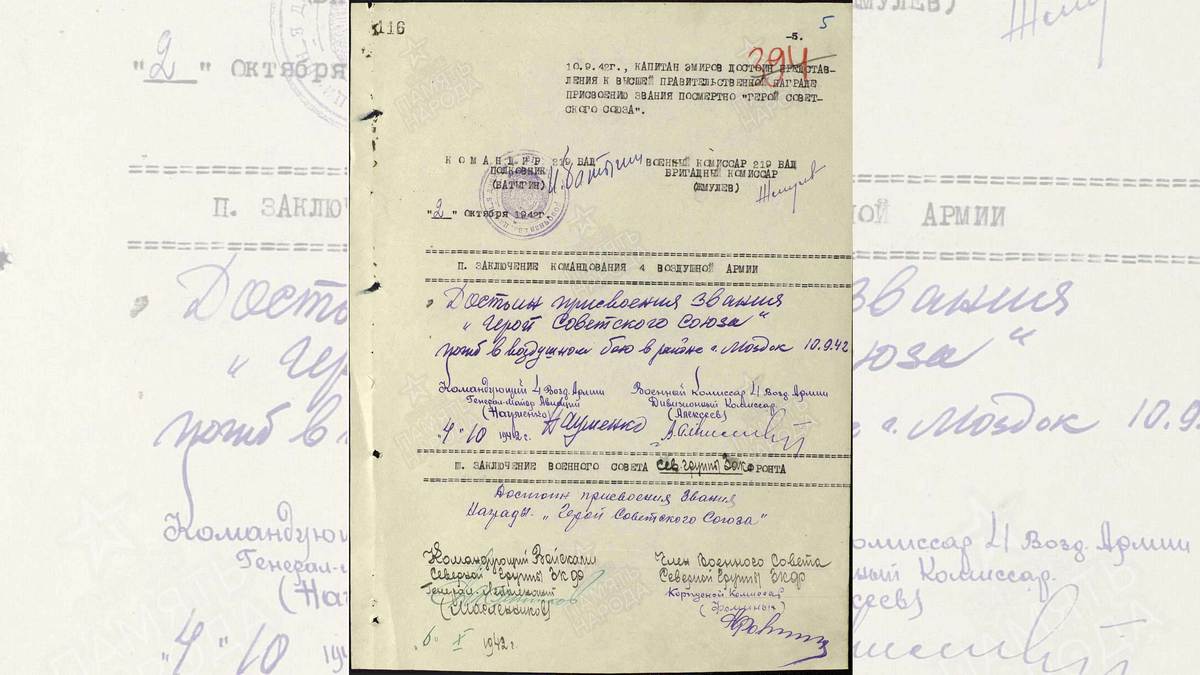 116
5
-5.
394
10.9.42г., КАПИТАН ЭМИРОВ ДОСТОИН ПРЕДСТАВ-
ЛЕНИЯ К ВЫСШЕЙ ПРАВИТЕЛЬСТВЕННОЙ НАГРАДЕ
ПРИСВОЕНИЮ ЗВАНИЯ ПОСМЕРТНО "ГЕРОЙ СОВЕТ-
СКОГО СОЮЗА".
КОМАНДИР 219 ВАД
ПОЛКОВНИК
(БАТЫГИН)
ВОЕННЫЙ КОМИССАР 219 ВАД
БРИГАДНЫЙ КОМИССАР
(ЖМУЛЕВ)
"2" Октября 1942г.
П. ЗАКЛЮЧЕНИЕ КОМАНДОВАНИЯ 4 ВОЗДУШНОЙ АРМИИ
Достоин присвоения звания
"Герой Советского Союза"
погиб в воздушном бою в районе г. Моздок 10.9.42
Командующий 4 Возд. Армии
Генерал-Майор Авиации
(Науменко) Науменко
"4" 10 1942г.
Военной Комиссар 4 Возд. Армии
Дивизионный Комиссар
(Алексеев)
Ш. ЗАКЛЮЧЕНИЕ ВОЕННОГО СОВЕТА Сев. Группы Зак ФРОНТА
Достоин присвоения Звания
Награды - "Герой Советского Союза"
Командующий Войсками
Северной Группы ЗКФ
Генерал-Лейтенант
(Масленников)
"6" X 1942г.
Член Военного Совета
Северной Группы ЗКФ
Корпусной Комиссар
(Фоминых)